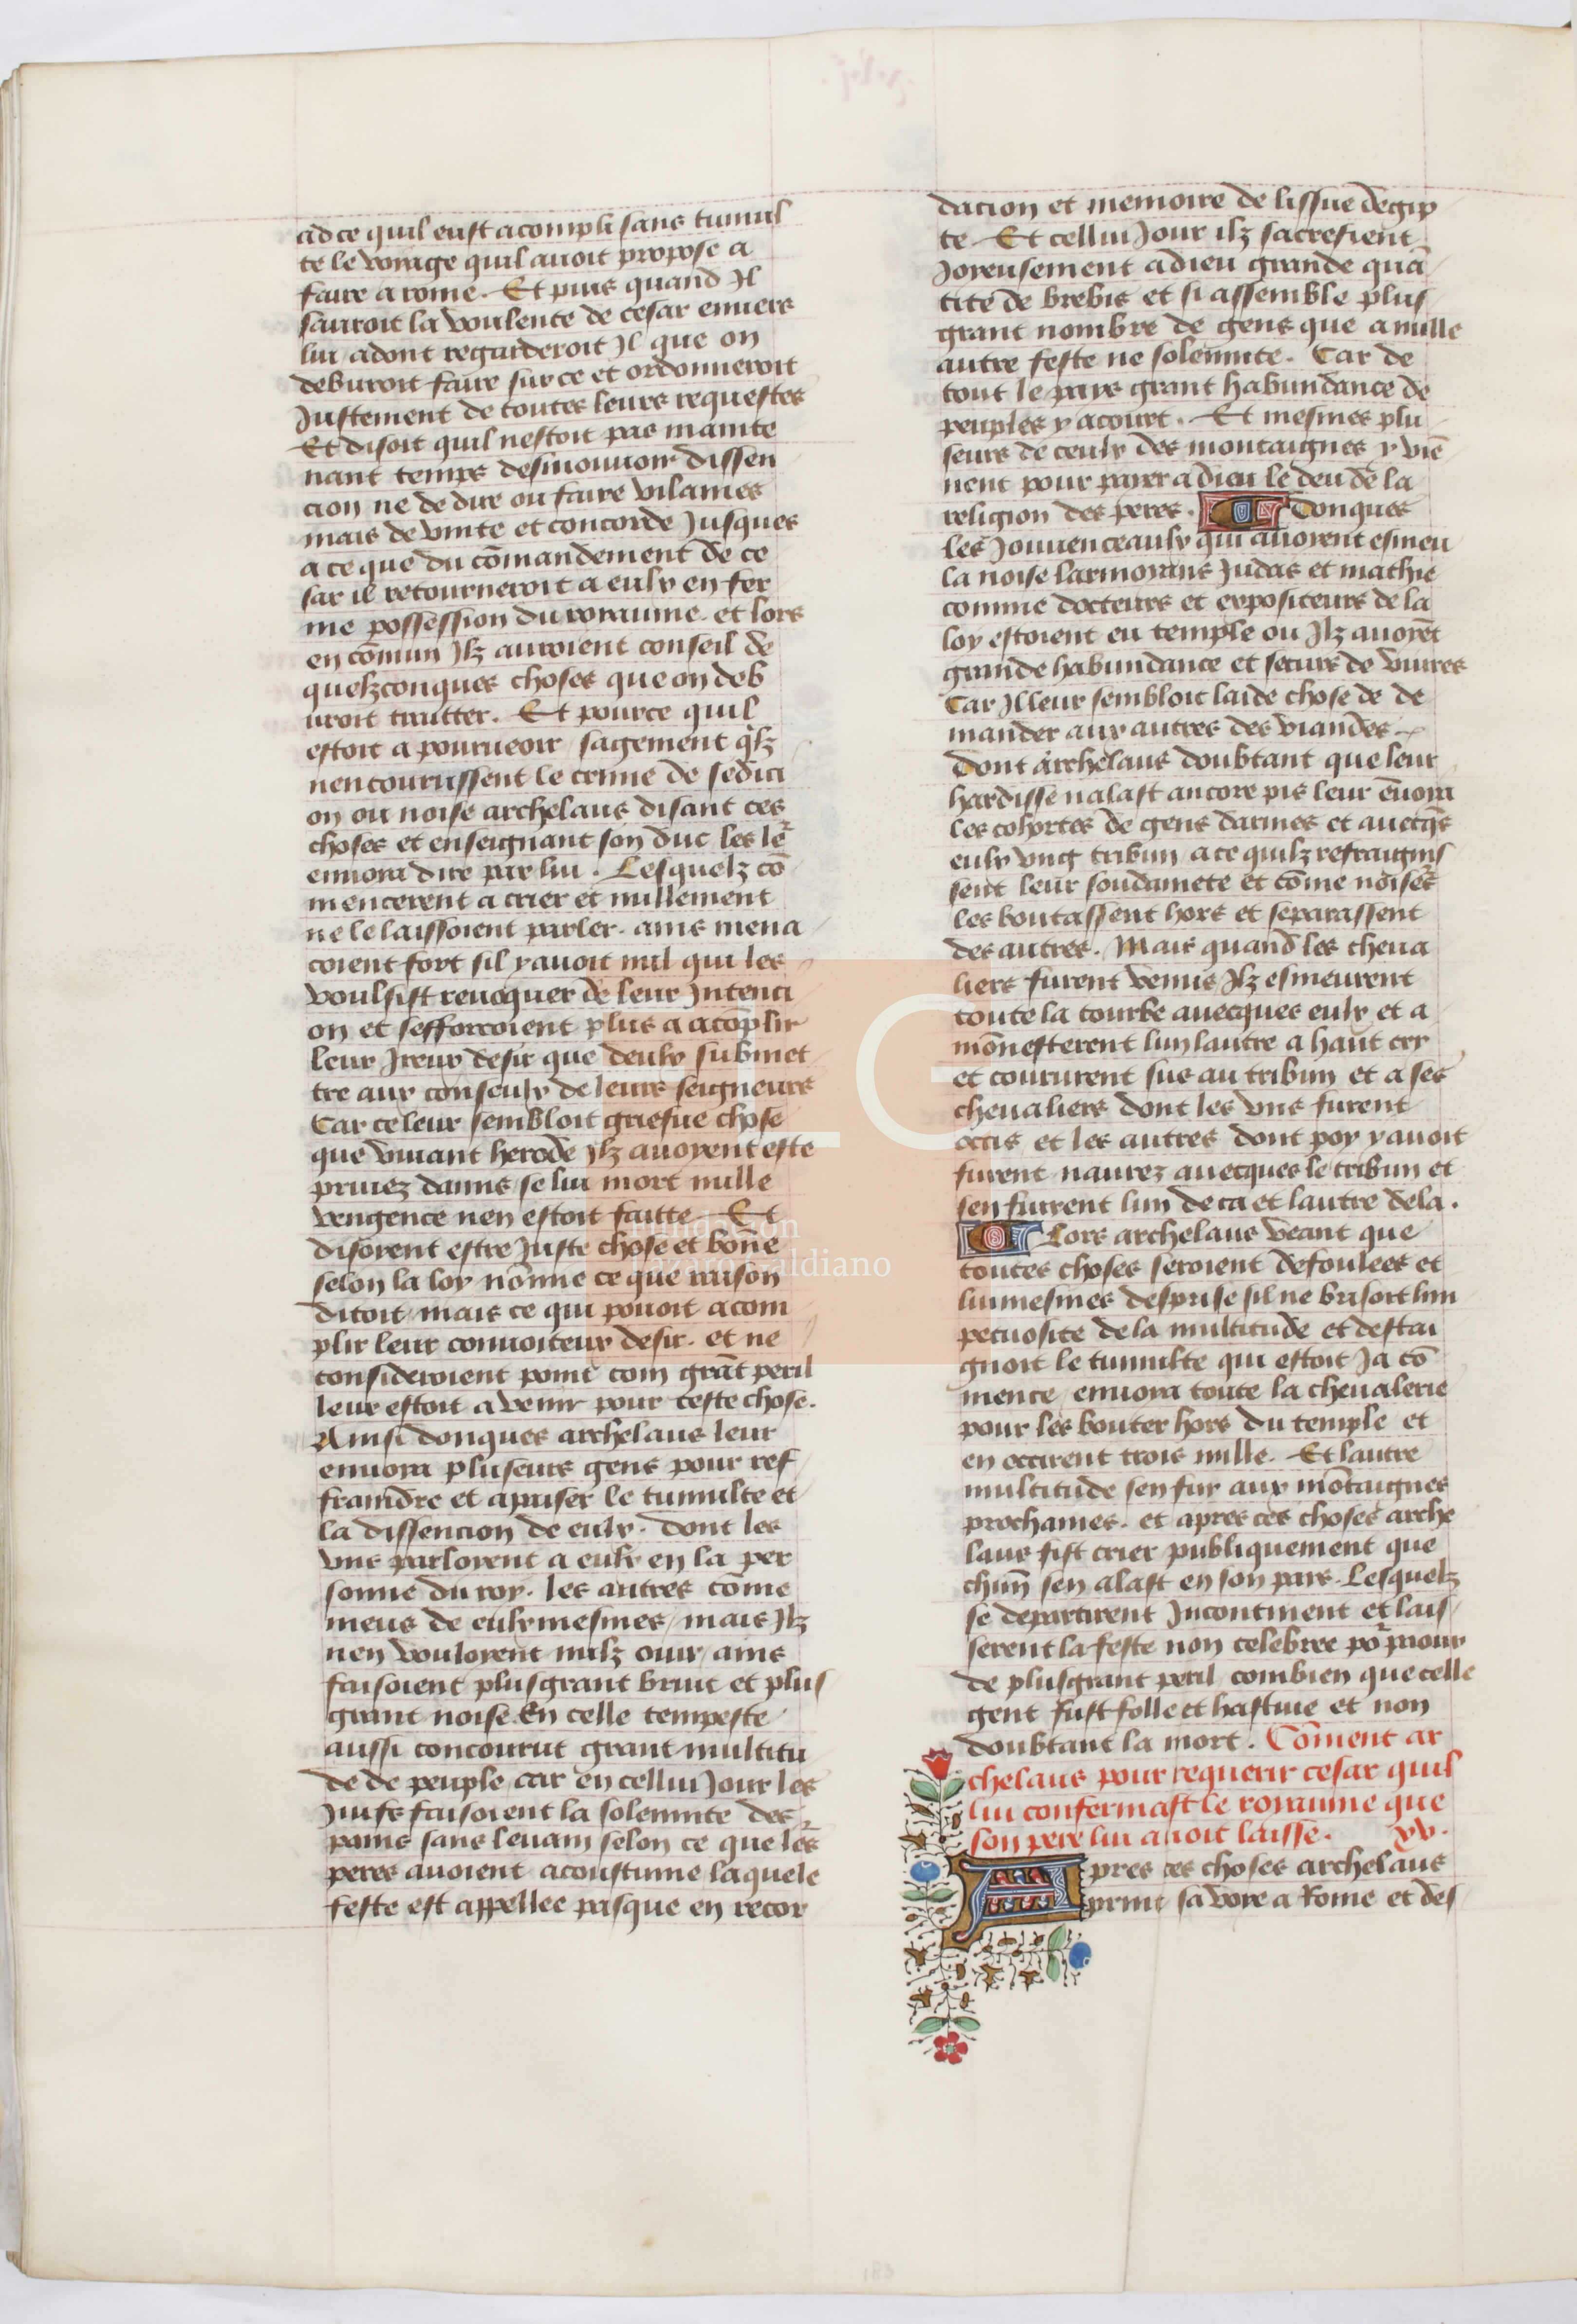 ad ce quil eust acompli sans tumul
te le voyage quil avoit propose a
faire a rome. Et puis quand Il
sauroit la voulente de cesar envers
lui adont regarderoit Il que on
deburoit faire sur ce et ordonneroit
Justement de toutes leurs requestes
Et disoit quil nestoit pas mainte
nant temps desmouvoir dissen
cion ne de dire ou faire vilanies
mais de unite et concorde Jusques
a ce que du cõmandement de ce
sar il retourneroit a eulx en fer
me possession du royaume. et lors
en cõmun Ilz auroient conseil de
quelzconques choses que on deb
uroit traitter. Et pource quil
estoit a pourveoir sagement qlz
nencourussent le crime de sedici
on ou noise archelaus disant ces
choses et enseignant son duc les le^r
envoia dire par lui. Lesquelz cõ
mencerent a crier et nullement
ne le laissoient parler. ains mena
coient fort sil y avoit nul qui les
voulsist revoquer de leur Intenci
on et sefforcoient plus a acõplir
leur Ireux desir que deulx submet
tre aux conseulx de leurs seigneurs
Car ce leur sembloit griefve chose
que vivant herode Ilz avoyent este
privez damis se lui mort nulle
vengence nen estoit faitte. Et
disoyent estre Juste chose et bõne
selon la loy nõme ce que raison
ditoit mais ce qui povoit acom
plir leur convoiteux desir. et ne
consideroient point com grãt peril
leur estoit a venir pour ceste chose.
Ainsi donques archelaus leur
envoia pluseurs gens pour ref
fraindre et apaiser le tumulte et
la dissencion de eulx. dont les
uns parloyent a eulx en la per
sonne du roy. les autres cõme
meus de eulx mesmes mais Ilz
nen vouloyent nulz ouir ains
faisoient plus grant bruit et plus
grant noise En celle tempeste
aussi concourut grant multitu
de de peuple car en cellui Jour les
Juifs faisoient la solennite des
pains sans levain selon ce que le^rs
peres avoient acoustume laquele
feste est appellee pasque en recor
dacion et memoire de lissue degip
te Et cellui Jour ilz sacrefient
Joyeusement a dieu grande quã
tite de brebis et si assemble plus
grant nombre de gens que a nulle
autre feste ne solennite. Car de
tout le pays grant habundance de
peuples y acourt. Et mesmes plu
seurs de ceulx des montaignes y viẽ
nent pour payer a dieu le deu de la
religion des peres. Donques
les Jouvenceaulx qui avoyent esmeu
la noise larmoyans Judas et mathie
comme docteurs et expositeurs de la
loy estoient eu temple ou Ilz avoyẽt
grande habundance et securs de vivres
Car Il leur sembloit laide chose de de
mander aux autres des viandes
dont archelaus doubtant que leur
hardisse nalast ancore pis leur ẽvoya
les cohortes de gens darmes et avecqs
eulx ung tribun a ce quilz refraignis
sent leur soudainete et cõme noise^rs
les boutassent hors et separassent
des autres. Mais quand les cheva
liers furent venus Ilz esmeurent
toute la tourbe avecques eulx et a
mõnesterent lun lautre a haut cry
et coururent sus au tribun et a ses
chevaliers dont les uns furent
occis et les autres dont poy y avoit
furent navrez avecques le tribun et
sen fuirent lun de ca et lautre de la.
Lors archelaus veant que
toutes choses seroient defoulees et
lui mesmes desprise sil ne brisoit lim
petuosite de la multitude et destai
gnoit le tumulte qui estoit Ja cõ
mence envoya toute la chevalerie
pour les bouter hors du temple et
en occirent trois mille. Et lautre
multitude sen fuy aux mõtaignes
prochaines. et apres ces choses arche
laus fist crier publiquement que
chun sen alast en son pays. Lesquelz
se departirent Incontinent et lais
serent la feste non celebree po^r paour
de plus grant peril combien que celle
gent fust folle et hastive et non
doubtant la mort. Cõment ar
chelaus pour requerir cesar quil
lui confermast le royaume que
son pere lui avoit laisse. xv.
Apres ces choses archelaus
print sa voye a Rome et des
Fundación
Lázaro Galdiano
LG